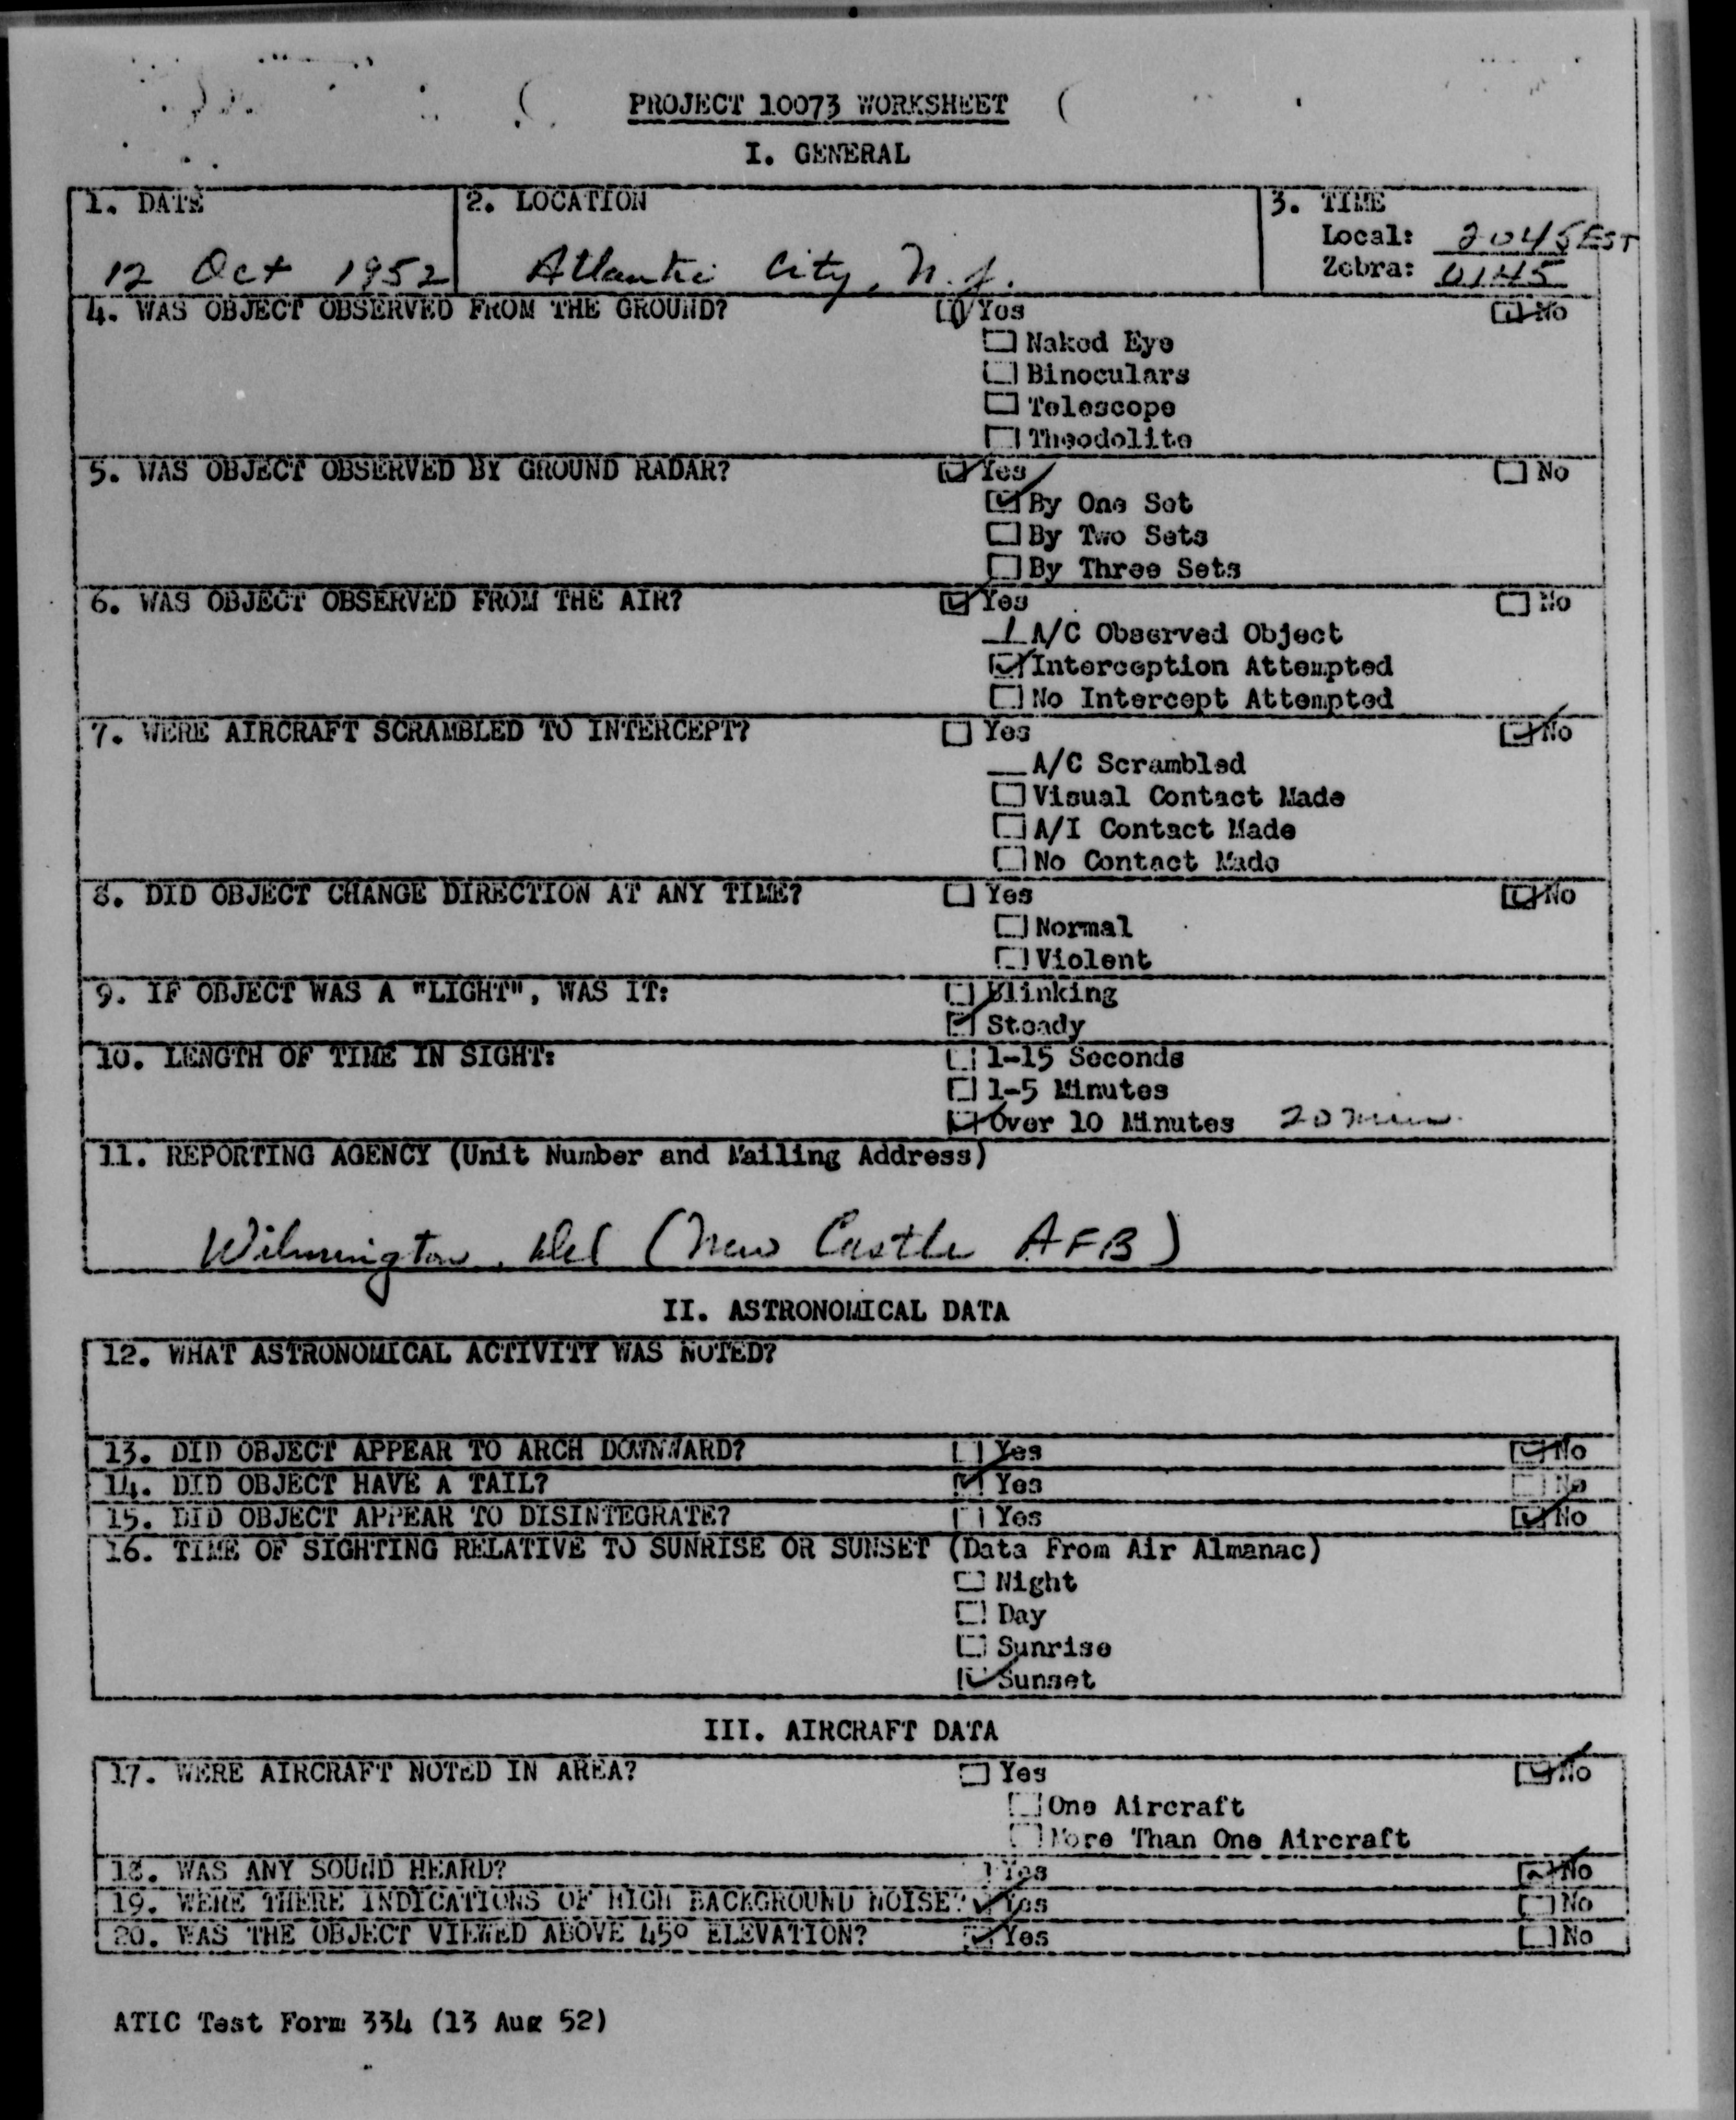 PROJECT 10073 WORKSHEET
I. GENERAL
1. DATE
12 Oct 1952
2. LOCATION
Atlantic City, N.J.
3. TIME
Local: 2045 EST
Zebra: 0145
4. WAS OBJECT OBSERVED FROM THE GROUND? Yes No
Naked Eye
Binoculars
Telescope
Theodolite
5. WAS OBJECT OBSERVED BY GROUND RADAR? Yes No
By One Set
By Two Sets
By Three Sets
6. WAS OBJECT OBSERVED FROM THE AIR? Yes No
1 A/C Observed Object
Interception Attempted
No Intercept Attempted
7. WERE AIRCRAFT SCRAMBLED TO INTERCEPT? Yes No
A/C Scrambled
Visual Contact Made
A/I Contact Made
No Contact Made
8. DID OBJECT CHANGE DIRECTION AT ANY TIME? Yes No
Normal
Violent
9. IF OBJECT WAS A "LIGHT", WAS IT: Blinking
Steady
10. LENGTH OF TIME IN SIGHT: 1-15 Seconds
1-5 Minutes
Over 10 Minutes 20 min
11. REPORTING AGENCY (Unit Number and Mailing Address)
Wilmington, Del (New Castle AFB)
II. ASTRONOMICAL DATA
12. WHAT ASTRONOMICAL ACTIVITY WAS NOTED?
13. DID OBJECT APPEAR TO ARCH DOWNWARD? Yes No
14. DID OBJECT HAVE A TAIL? Yes No
15. DID OBJECT APPEAR TO DISINTEGRATE? Yes No
16. TIME OF SIGHTING RELATIVE TO SUNRISE OR SUNSET (Data From Air Almanac)
Night
Day
Sunrise
Sunset
III. AIRCRAFT DATA
17. WERE AIRCRAFT NOTED IN AREA? Yes No
One Aircraft
More Than One Aircraft
18. WAS ANY SOUND HEARD? Yes No
19. WERE THERE INDICATIONS OF HIGH BACKGROUND NOISE? Yes No
20. WAS THE OBJECT VIEWED ABOVE 45° ELEVATION? Yes No
ATIC Test Form 334 (13 Aug 52)